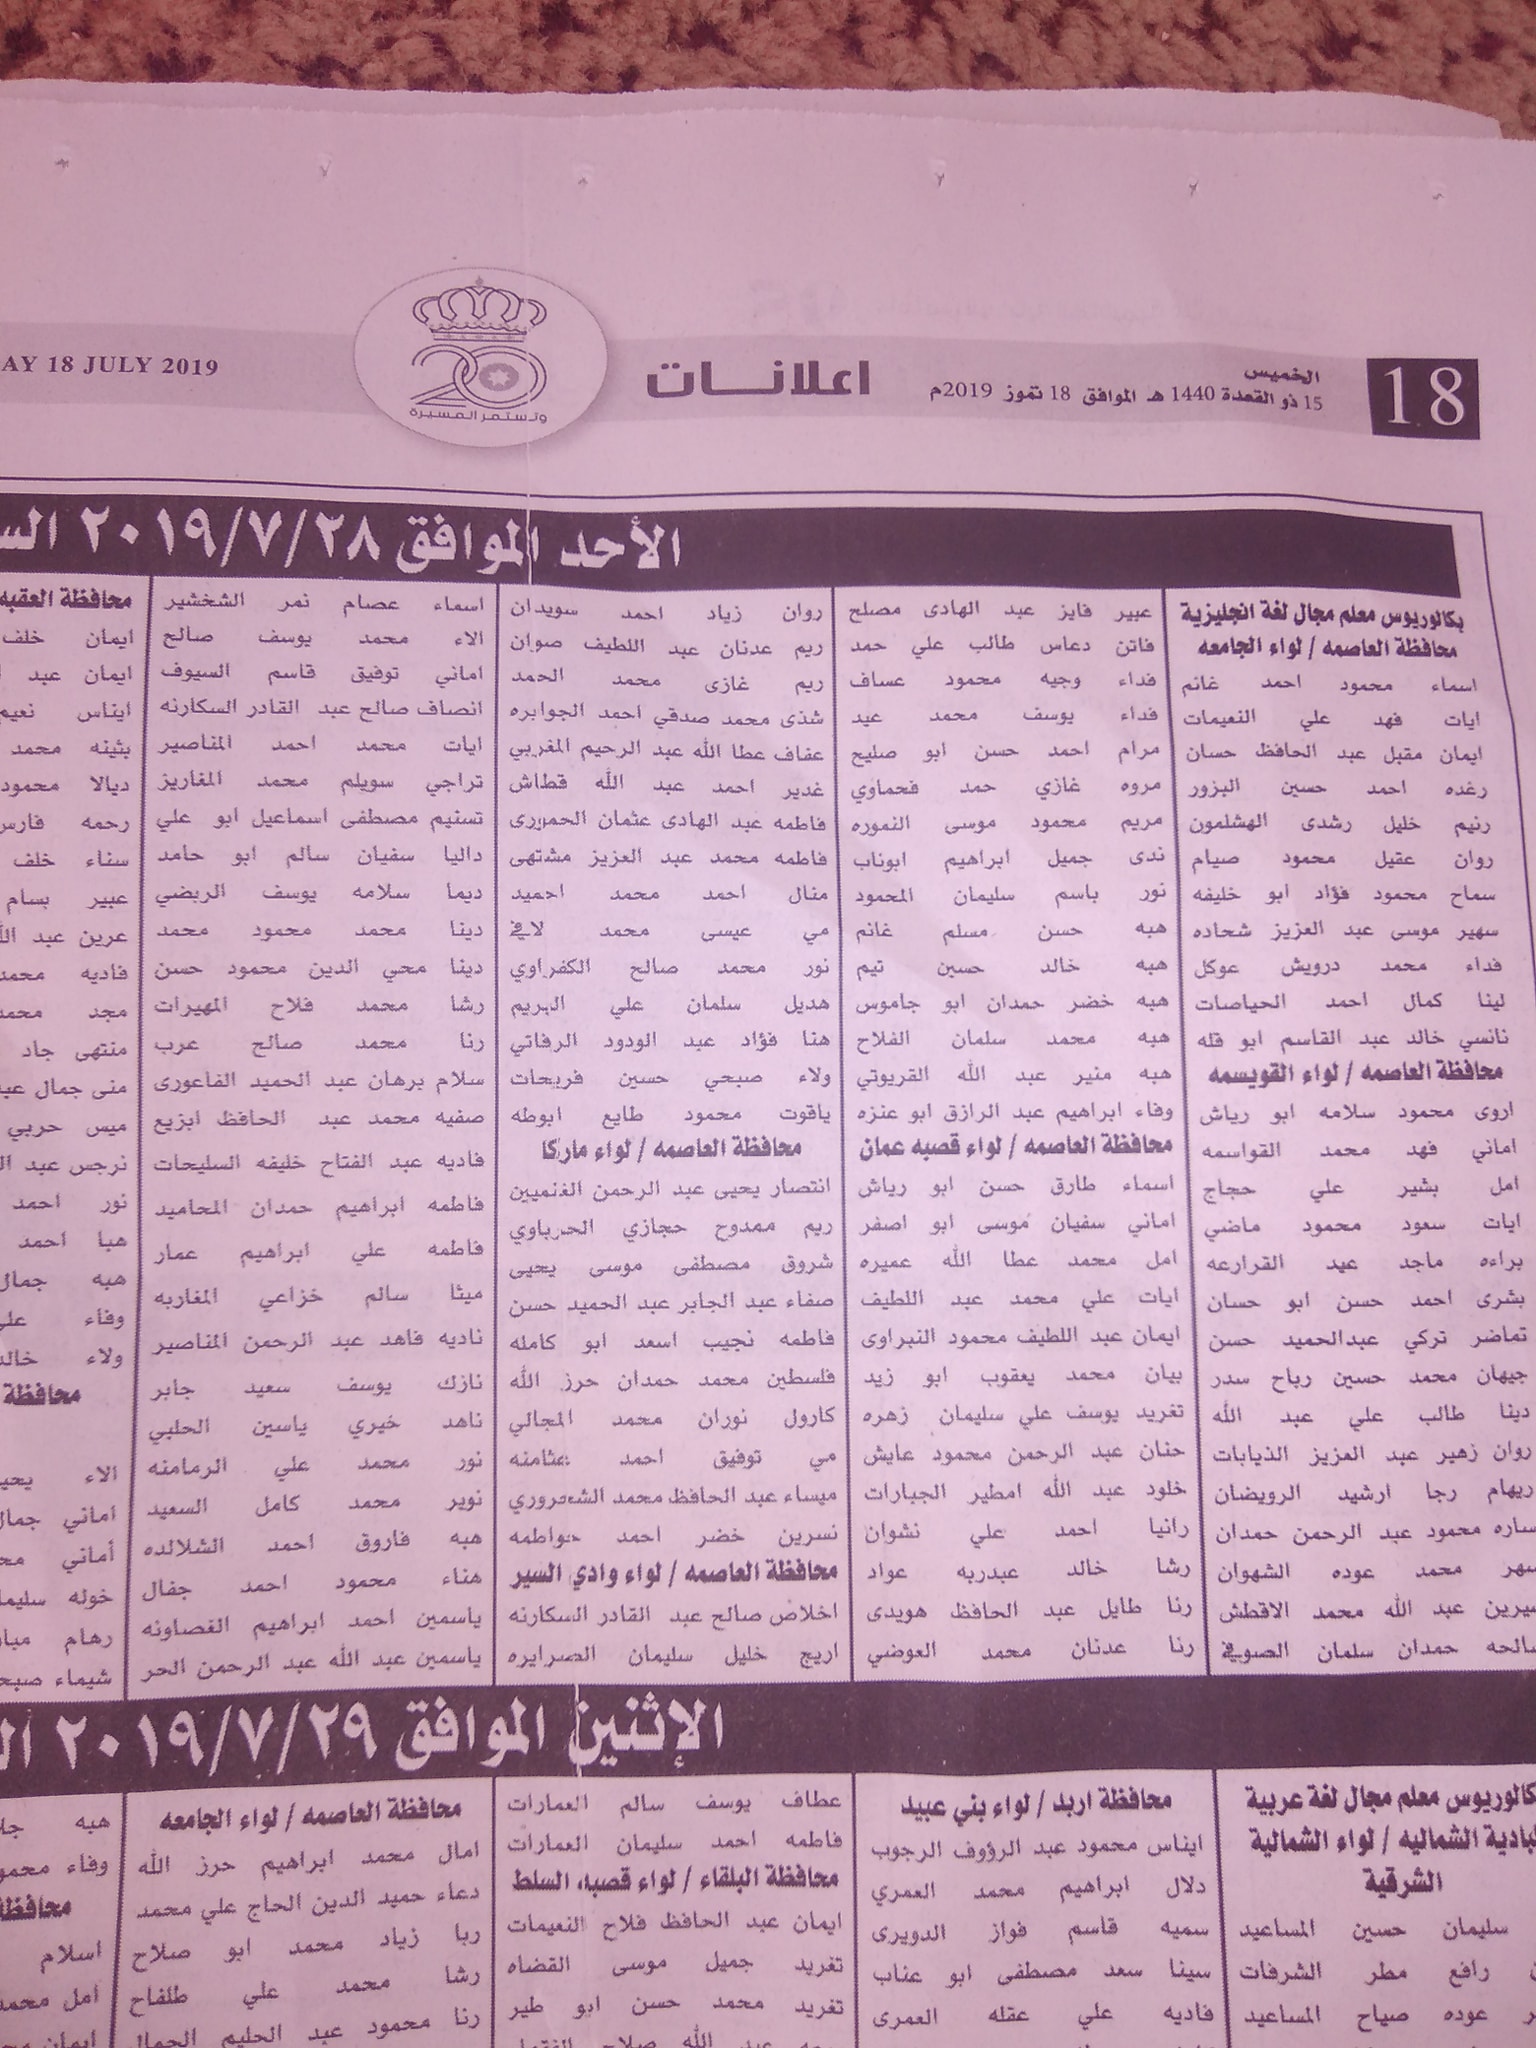 18
الخميس
15 ذو القعدة 1440 هـ الموافق 18 تموز 2019م
اعلانـــات
20
وتستمر المسيرة
AY 18 JULY 2019
الأحد الموافق ٢٠١٩/٧/٢٨
بكالوريوس معلم مجال لغة انجليزية
محافظة العاصمه / لواء الجامعه
اسماء محمود احمد غانم
ايات فهد علي النعيمات
ايمان مقبل عبد الحافظ حسان
رغده احمد حسين البزور
رنيم خليل رشدى الهشلمون
روان عقيل محمود صيام
سماح محمود فؤاد ابو خليفه
سهير موسى عبد العزيز شحاده
فداء محمد درويش عوكل
لينا كمال احمد الحياصات
نانسي خالد عبد القاسم ابو قله
محافظة العاصمه / لواء القويسمه
اروى محمود سلامه ابو رياش
اماني فهد محمد القواسمه
امل بشير علي حجاج
ايات سعود محمود ماضي
براءه ماجد عيد القرارعه
بشرى احمد حسن ابو حسان
تماضر تركي عبدالحميد حسن
جيهان محمد حسين رباح سدر
دينا طالب علي عبد الله
روان زهير عبد العزيز الذيابات
ريهام رجا ارشيد الرويضان
ساره محمود عبد الرحمن حمدان
سهر محمد عوده الشهوان
سيرين عبد الله محمد الاقطش
صالحه حمدان سلمان الصوفي
عبير فايز عبد الهادى مصلح
فاتن دعاس طالب علي حمد
فداء وجيه محمود عساف
فداء يوسف محمد عيد
مرام احمد حسن ابو صليح
مروه غازي حمد فحماوي
مريم محمود موسى النموره
ندى جميل ابراهيم ابوناب
نور باسم سليمان المحمود
هبه حسن مسلم غانم
هبه خالد حسين تيم
هبه خضر حمدان ابو جاموس
هبه محمد سلمان الفلاح
هبه منير عبد الله القريوتي
وفاء ابراهيم عبد الرازق ابو عنزه
محافظة العاصمه / لواء قصبه عمان
اسماء طارق حسن ابو رياش
اماني سفيان موسى ابو اصفر
امل محمد عطا الله عميره
ايات علي محمد عبد اللطيف
ايمان عبد اللطيف محمود النبراوى
بيان محمد يعقوب ابو زيد
تغريد يوسف علي سليمان زهره
حنان عبد الرحمن محمود عايش
خلود عبد الله امطير الجبارات
رانيا احمد علي نشوان
رشا خالد عبدربه عواد
رنا طايل عبد الحافظ هويدى
رنا عدنان محمد العوضي
روان زياد احمد سويدان
ريم عدنان عبد اللطيف صوان
ريم غازى محمد الحمد
شذى محمد صدقي احمد الجوابره
عفاف عطا الله عبد الرحيم المغربي
غدير احمد عبد الله قطاش
فاطمه عبد الهادى عثمان الحمورى
فاطمه محمد عبد العزيز مشتهى
منال احمد محمد احميد
مي عيسى محمد لافي
نور محمد صالح الكفراوي
هديل سلمان علي البريم
هنا فؤاد عبد الودود الرفاتي
ولاء صبحي حسين فريحات
ياقوت محمود طايع ابوطه
محافظة العاصمه / لواء ماركا
انتصار يحيى عبد الرحمن الغنميين
ريم ممدوح حجازي الحرباوي
شروق مصطفى موسى يحيى
صفاء عبد الجابر عبد الحميد حسن
فاطمه نجيب اسعد ابو كامله
فلسطين محمد حمدان حرز الله
كارول نوران محمد المجالي
مي توفيق احمد عثامنه
ميساء عبد الحافظ محمد الشحروري
نسرين خضر احمد حواطمه
محافظة العاصمه / لواء وادي السير
اخلاص صالح عبد القادر السكارنه
اريج خليل سليمان الصرايره
اسماء عصام نمر الشخشير
الاء محمد يوسف صالح
اماني توفيق قاسم السيوف
انصاف صالح عبد القادر السكارنه
ايات محمد احمد المناصير
تراجي سويلم محمد المغاريز
تسنيم مصطفى اسماعيل ابو علي
داليا سفيان سالم ابو حامد
ديما سلامه يوسف الربضي
دينا محمد محمود محمد
دينا محي الدين محمود حسن
رشا محمد فلاح المهيرات
رنا محمد صالح عرب
سلام برهان عبد الحميد الفاعورى
صفيه محمد عبد الحافظ ابزيع
فاديه عبد الفتاح خليفه السليحات
فاطمه ابراهيم حمدان المحاميد
فاطمه علي ابراهيم عمار
ميثا سالم خزاعي المغاربه
ناديه فاهد عبد الرحمن المناصير
نازك يوسف سعيد جابر
ناهد خيري ياسين الحلبي
نور محمد علي الرمامنه
نوير محمد كامل السعيد
هبه فاروق احمد الشلالده
هناء محمود احمد جفال
ياسمين احمد ابراهيم الغصاونه
ياسمين عبد الله عبد الرحمن الحر
محافظة العقبه
ايمان خلف
ايمان عبد
ايناس نعيم
بثينه محمد
ديالا محمود
رحمه فارس
سناء خلف
عبير بسام
عرين عبد
فاديه محمد
مجد محمد
منتهى جاد
منى جمال
ميس حربي
نرجس عبد
نور احمد
هبا احمد
هبه جمال
وفاء
ولاء خالد
محافظة
الاء
اماني جمال
أماني
خوله
رهام
شيماء
الإثنين الموافق ٢٠١٩/٧/٢٩
بكالوريوس معلم مجال لغة عربية
البادية الشماليه / لواء الشمالية
الشرقية
سليمان حسين المساعيد
رافع مطر الشرفات
عوده صياح المساعيد
محافظة اربد / لواء بني عبيد
ايناس محمود عبد الرؤوف الرجوب
دلال ابراهيم محمد العمري
سميه قاسم فواز الدويرى
سينا سعد مصطفى ابو عناب
فاديه علي عقله العمرى
عطاف يوسف سالم العمارات
فاطمه احمد سليمان العمارات
محافظة البلقاء / لواء قصبه السلط
ايمان عبد الحافظ فلاح النعيمات
تغريد جميل موسى القضاه
تغريد محمد حسن ابو طير
عبد الله صلاح
محافظة العاصمه / لواء الجامعه
امال محمد ابراهيم حرز الله
دعاء حميد الدين الحاج علي محمد
ربا زياد محمد ابو صلاح
رشا محمد علي طلفاح
رنا محمود عبد الحليم الجمال
هبه
وفاء
محافظة
اسلام
امل محمد
ايمان